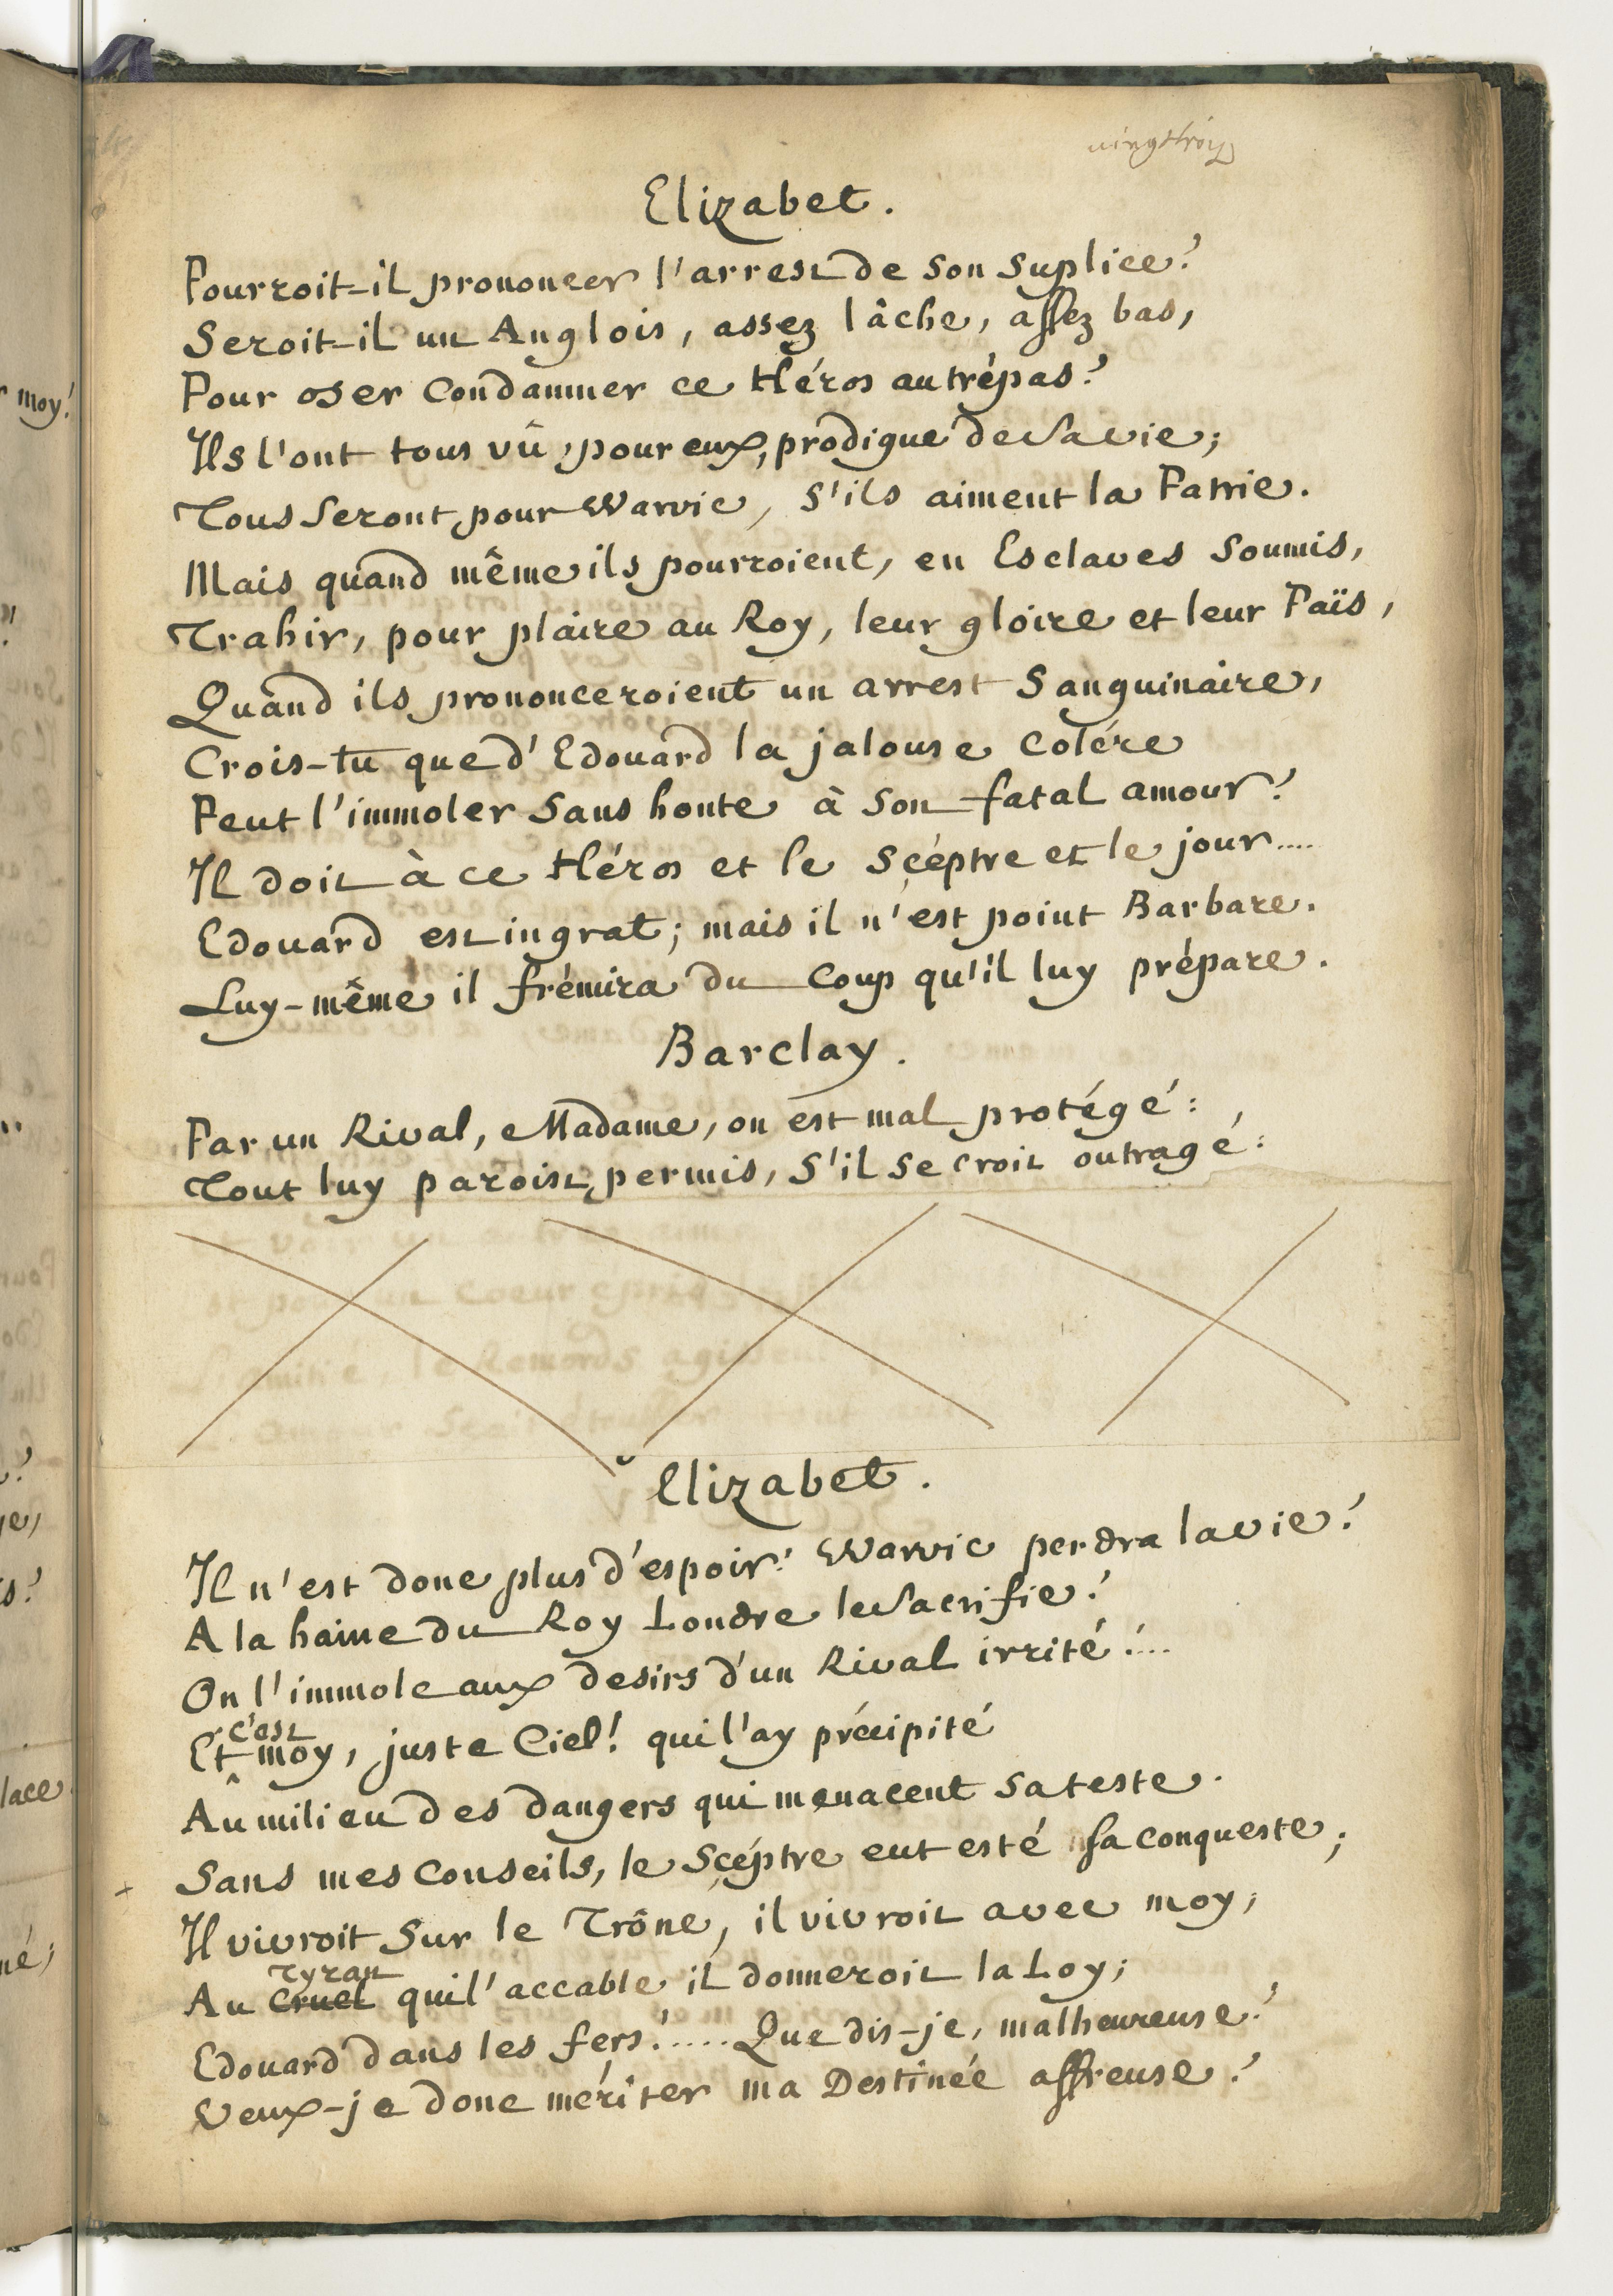 vingttrois
Elizabet.
Pourroit-il prononcer l'arrest de son suplice?
Seroit-il un Anglois, assez lâche, assez bas,
Pour oser condamner ce Héros au trépas?
Ils l'ont tous vû, pour eux, prodigue de sa vie;
Tous seront pour Warvic, s'ils aiment la Patrie.
Mais quand même ils pourroient, en Esclaves soumis,
Trahir, pour plaire au Roy, leur gloire et leur Païs,
Quand ils prononceroient un arrest sanguinaire,
Crois-tu que d'Edouard la jalouse colére
Peut l'immoler sans honte à son fatal amour?
Il doit à ce Héros et le sçéptre et le jour....
Edouard est ingrat; mais il n'est point Barbare.
Luy-même il frémira du coup qu'il luy prépare.
Barclay.
Par un Rival, Madame, on est mal protégé:
Tout luy paroist permis, s'il se croit outragé:
Elizabet.
Il n'est donc plus d'espoir! Warvic perdra la vie!
A la haine du Roy Londre le sacrifie!
On l'immole aux desirs d'un Rival irrité!....
c'est
Et moy, juste Ciel! qui l'ay précipité
Au milieu des dangers qui menacent sa teste.
Sans mes conseils, le sçéptre eut esté sa conqueste;
Il vivroit sur le Trône, il vivroit avec moy;
Tyran
Au cruel qui l'accable il donneroit la Loy;
Edouard dans les fers!..... Que dis-je, malheureuse!
Veux-je donc mériter ma Destinée affreuse?